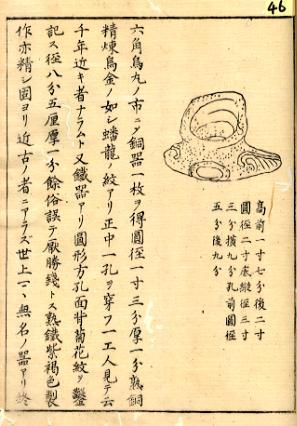 46
高前一寸七分後二寸
圓徑二寸底縱徑三寸
三分横九分孔前圓徑
五分後九分
六角烏丸ノ市ニテ銅器一枚ヲ得圓徑一寸三分厚一分熟銅
精煉烏金ノ如シ蟠龍ノ紋アリ正中一孔ヲ穿フ一工人見テ云
千年近キ者ナラムト又鐵器アリ圓形方孔面背菊花紋ヲ鏨
記ス徑八分五厘厚一分餘俗誤テ厭勝錢トス熟鐵紫褐色製
作亦精シ固ヨリ近古ノ者ニアラズ世上マヽ無名ノ器アリ終